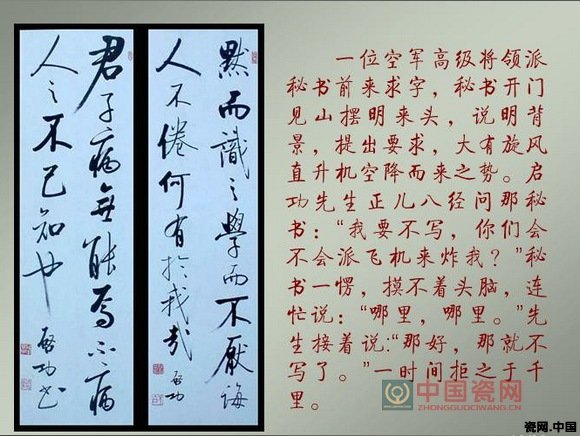 默而識之學而不厭誨
人不倦何有於我哉
啟功
君子病無能焉不病
人之不己知也
啟功书
一位空军高级将领派
秘书前来求字，秘书开门
见山摆明来头，说明背
景，提出要求，大有旋风
直升机空降而来之势。启
功先生正儿八经问那秘
书：“我要不写，你们会
不会派飞机来炸我？”秘
书一愣，摸不着头脑，连
忙说：“哪里，哪里。”先
生接着说：“那好，那就不
写了。”一时间拒之于千
里。
中国瓷网
ZHONGGUOCIWANG.CN
瓷网.中国